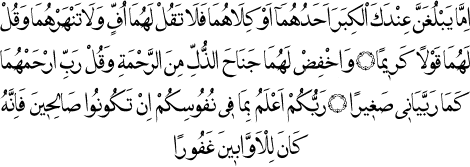 اِمَّا يَبْلُغَنَّ عِنْدَكَ الْكِبَرَ اَحَدُهُمَٓا اَوْ كِلَاهُمَا فَلَا تَقُلْ لَهُمَٓا اُفٍّ وَلَا تَنْهَرْهُمَا وَقُلْ
لَهُمَا قَوْلًا كَر۪يمًا ۝ وَاخْفِضْ لَهُمَا جَنَاحَ الذُّلِّ مِنَ الرَّحْمَةِ وَقُلْ رَبِّ ارْحَمْهُمَا
كَمَا رَبَّيَان۪ى صَغ۪يرًا ۝ رَبُّكُمْ اَعْلَمُ بِمَا ف۪ى نُفُوسِكُمْ اِنْ تَكُونُوا صَالِح۪ينَ فَاِنَّهُ
كَانَ لِلْاَوَّاب۪ينَ غَفُورًا